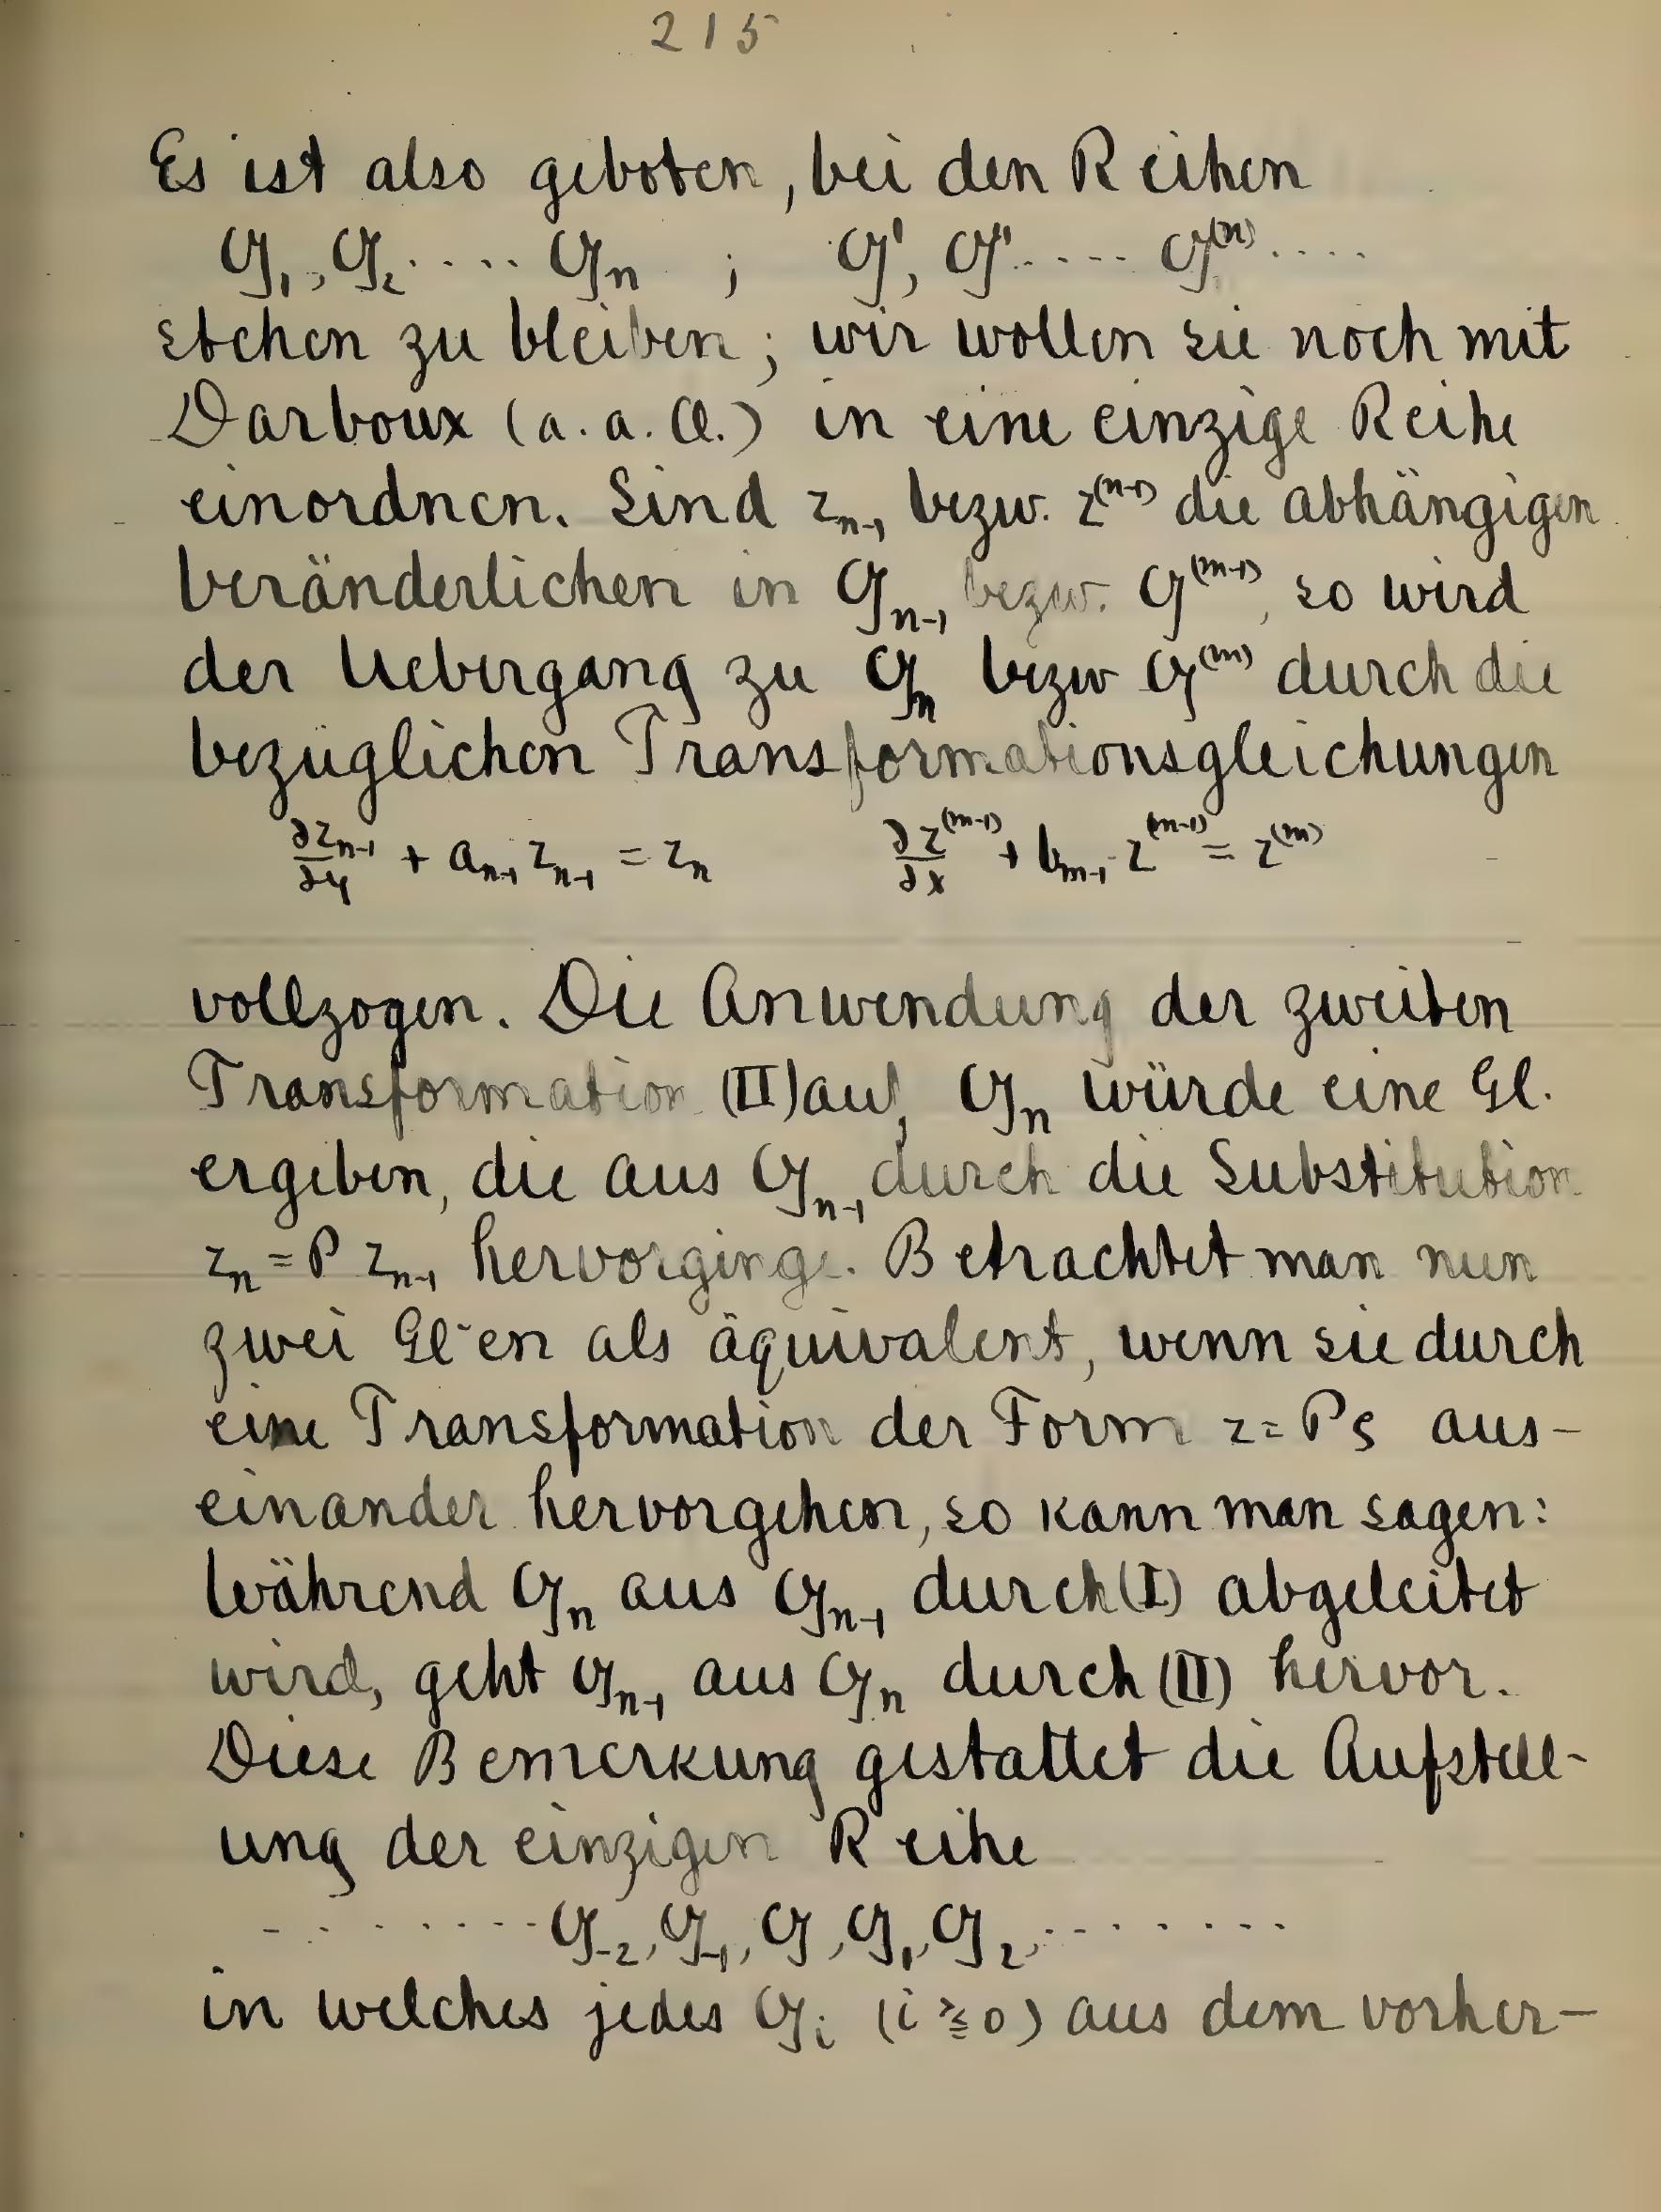 215
Es ist also geboten, bei den Reihen
G₁, G₂ .... Gₙ ; G', G'' .... G⁽ⁿ⁾ ....
stehen zu bleiben; wir wollen sie noch mit
Darboux (a. a. O.) in eine einzige Reihe
einordnen. Sind zₙ₋₁ bezw. z⁽ⁿ⁻¹⁾ die abhängigen
Veränderlichen in Gₙ₋₁ bezw. G⁽ᵐ⁻¹⁾, so wird
der Uebergang zu Gₙ bezw G⁽ᵐ⁾ durch die
bezüglichen Transformationsgleichungen
∂zₙ₋₁/∂y + aₙ₋₁ zₙ₋₁ = zₙ ∂z⁽ᵐ⁻¹⁾/∂x + bₘ₋₁ z⁽ᵐ⁻¹⁾ = z⁽ᵐ⁾
vollzogen. Die Anwendung der zweiten
Transformation (II) auf Gₙ würde eine Gl.
ergeben, die aus Gₙ₋₁ durch die Substitution
zₙ = P zₙ₋₁ hervorginge. Betrachtet man nun
zwei Gl-en als äquivalent, wenn sie durch
eine Transformation der Form z = Pς aus-
einander hervorgehen, so kann man sagen:
Während Gₙ aus Gₙ₋₁ durch (I) abgeleitet
wird, geht Gₙ₋₁ aus Gₙ durch (II) hervor.
Diese Bemerkung gestattet die Aufstell-
ung der einzigen Reihe
........ G₋₂, G₋₁, G, G₁, G₂, ........
in welches jedes Gᵢ (i ⪌ 0) aus dem vorher-